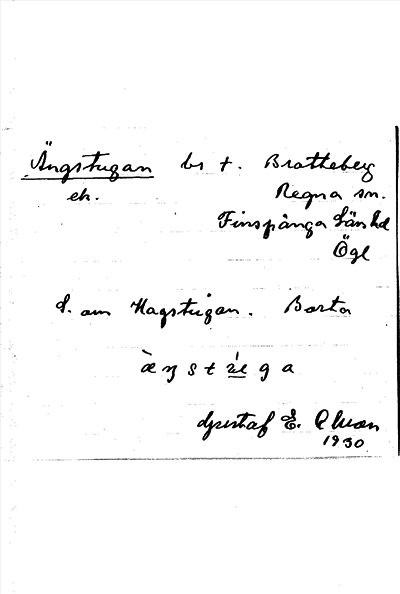 Ängstugan bs t. Bratteberg
ek. Regna sn.
Finspånga Läns hd
Ögl
S. om Hagstugan. Borta
Gustaf E.
1930